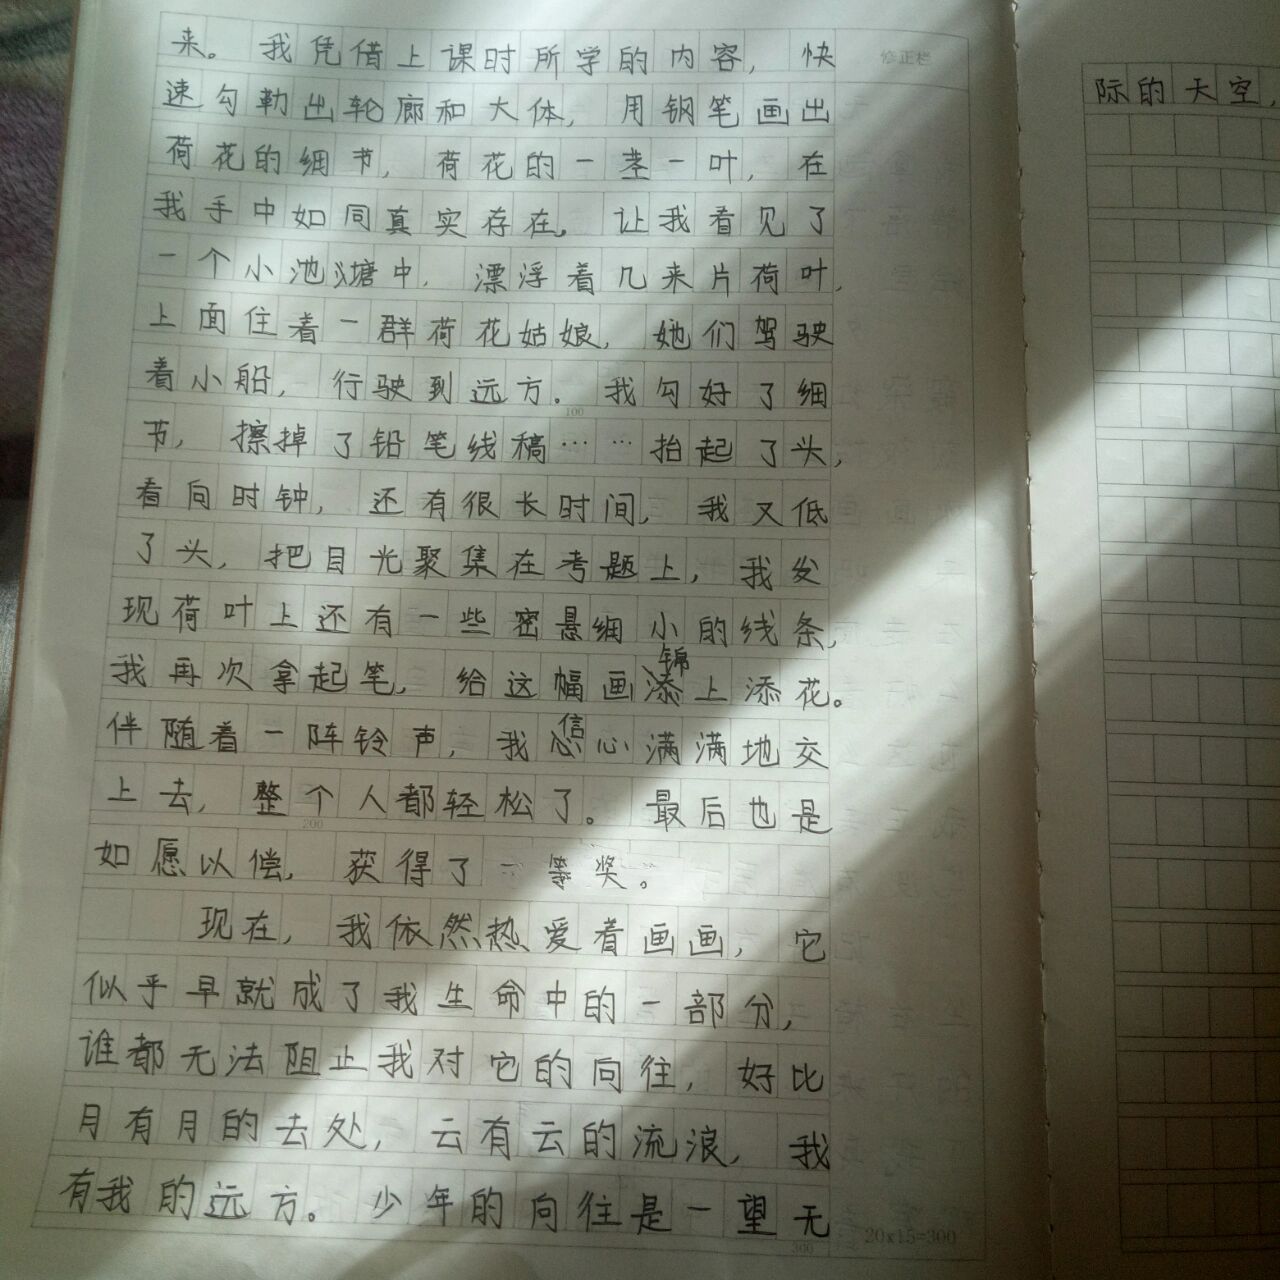 来。我凭借上课时所学的内容，快
速勾勒出轮廊和大体，用钢笔画出
荷花的细节，荷花的一茎一叶，在
我手中如同真实存在。让我看见了
一个小池塘中，漂浮着几来片荷叶，
上面住着一群荷花姑娘，她们驾驶
着小船，行驶到远方。我勾好了细
节，擦掉了铅笔线稿……抬起了头，
看向时钟，还有很长时间，我又低
了头，把目光聚集在考题上，我发
现荷叶上还有一些密悬细小的线条，
我再次拿起笔，给这幅画锦上添花。
伴随着一阵铃声，我信心满满地交
上去，整个人都轻松了。最后也是
如愿以偿，获得了一等奖。
现在，我依然热爱着画画，它
似乎早就成了我生命中的一部分，
谁都无法阻止我对它的向往，好比
月有月的去处，云有云的流浪，我
有我的远方。少年的向往是一望无
修正栏
100
200
300
20x15=300
际的天空，